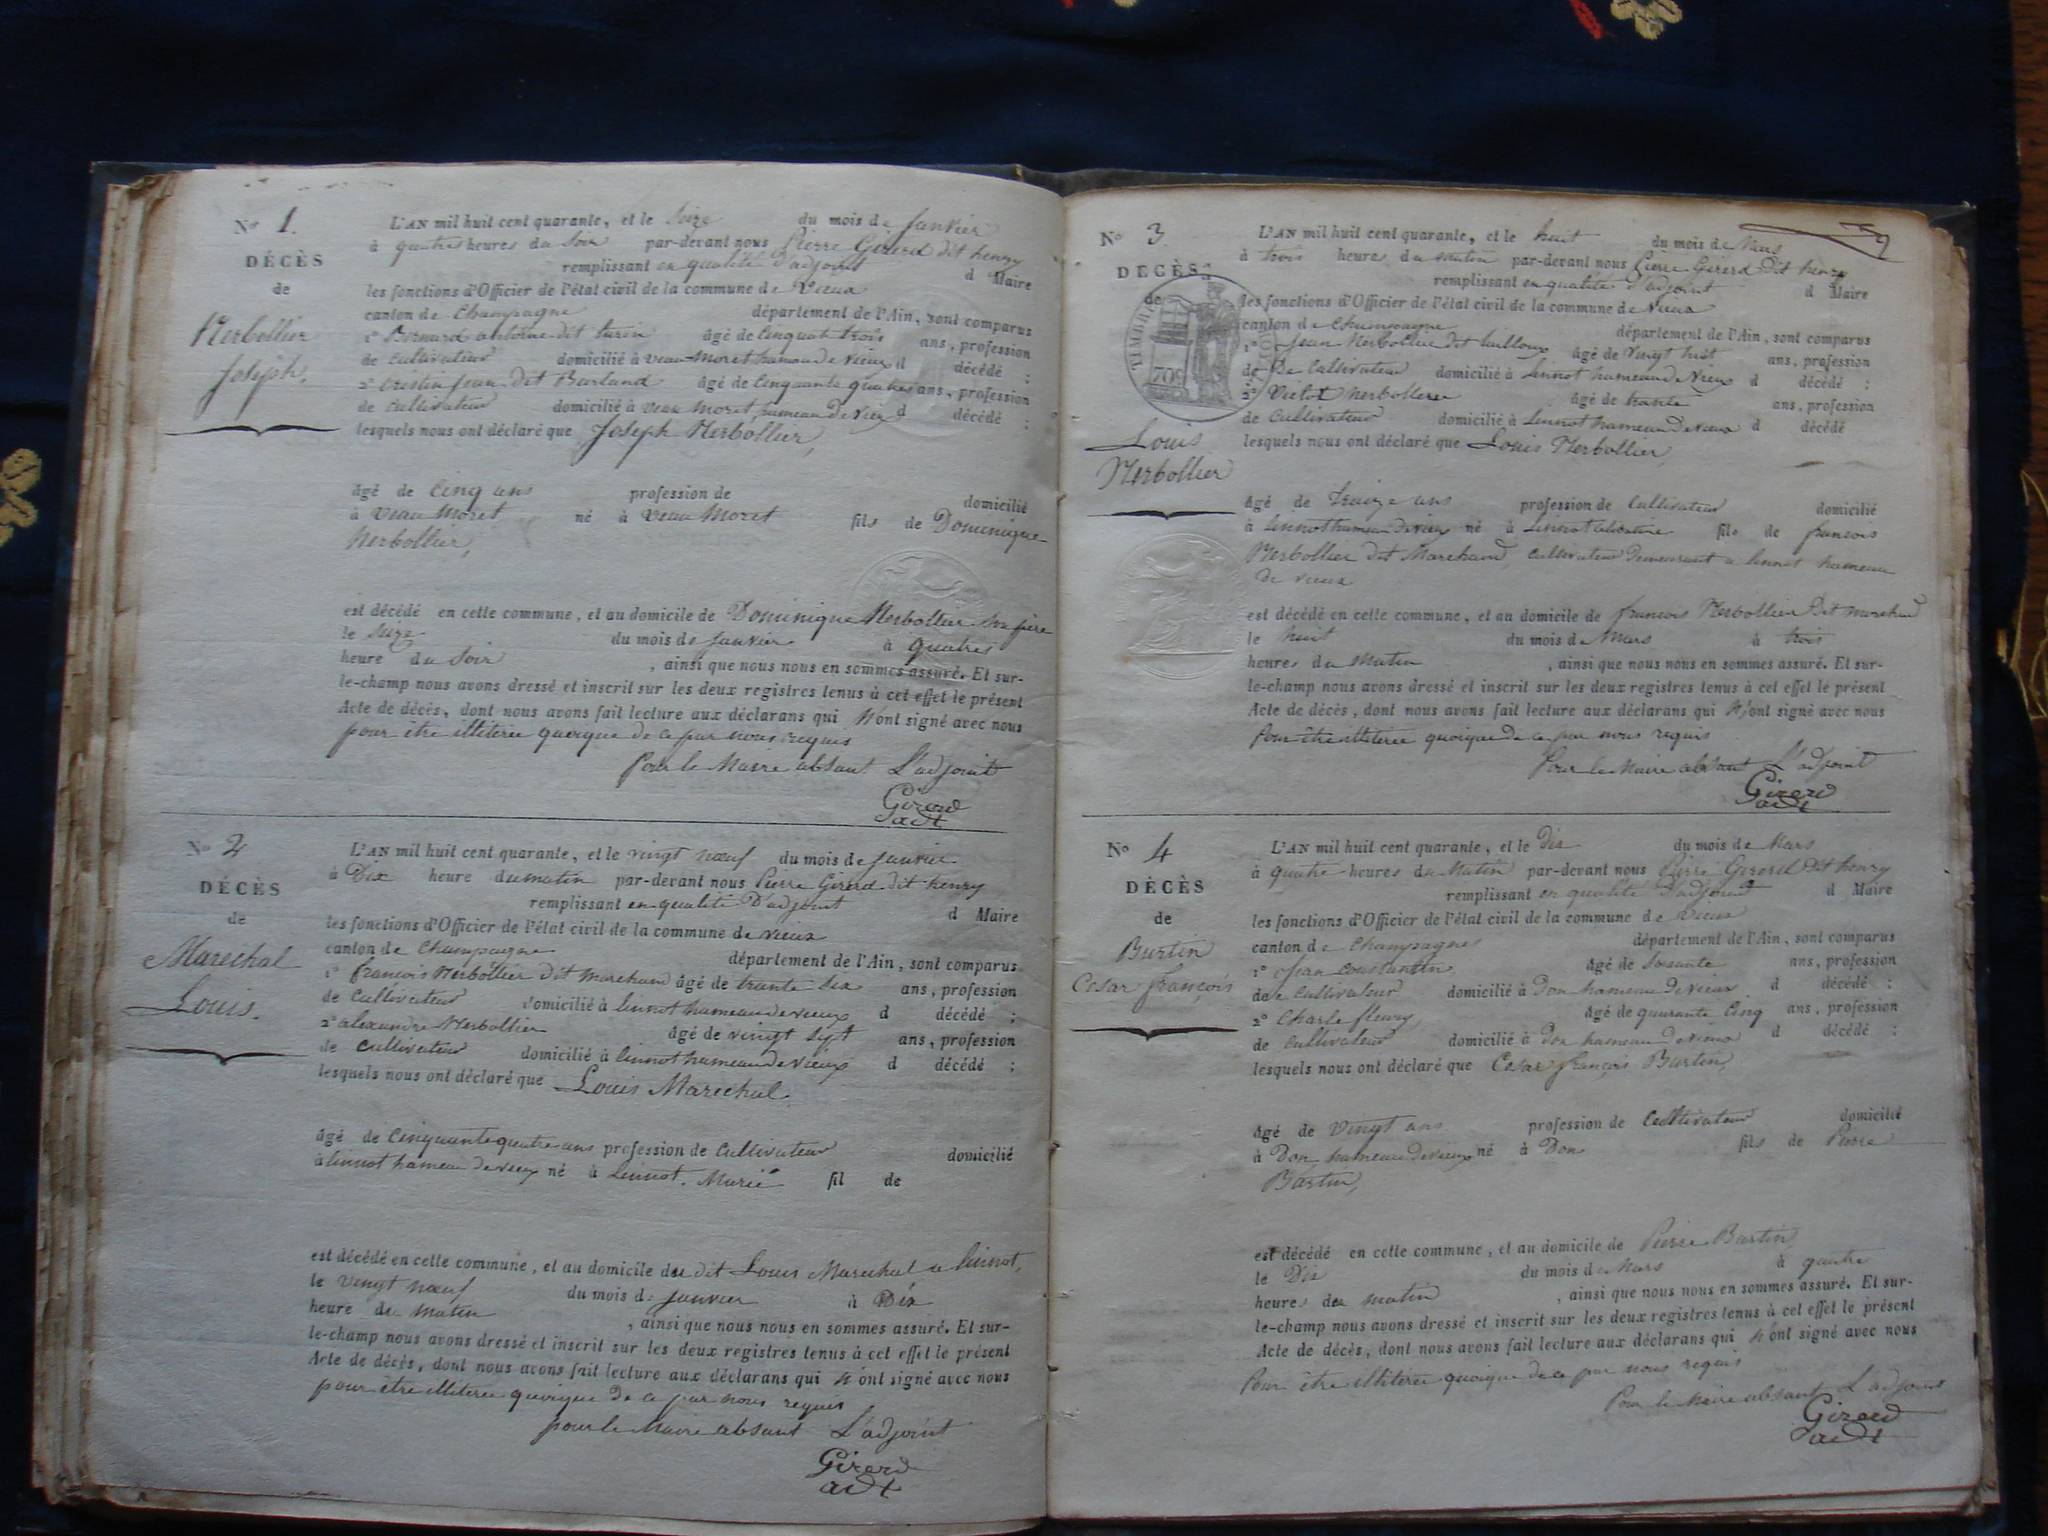 No 1.
DÉCÈS
de
Nerbollier
Joseph.
L'AN mil huit cent quarante, et le Seize du mois de Janvier
à quatres heures du Soir par-devant nous Pierre Girerd dit henry
remplissant en qualité D'adjoint d Maire
les fonctions d'Officier de l'état civil de la commune de Vieux
canton de Champagne département de l'Ain, sont comparus
1º Bernard antoine dit turin âgé de Cinquante trois ans, profession
de Cultivateur domicilié à Veau Moret hameau de Vieux d décédé ;
2º Jean dit Burland âgé de Cinquante quatres ans, profession
de Cultivateur domicilié à Veau Moret hameau de Vieux d décédé ;
lesquels nous ont déclaré que Joseph Nerbollier,
âgé de Cinq ans profession de domicilié
à Veau Moret né à Veau Moret fils de Dominique
Nerbollier,
est décédé en cette commune, et au domicile de Dominique Nerbollier Son père
le Seize du mois de Janvier à quatres
heure du Soir , ainsi que nous nous en sommes assuré. Et sur-
le-champ nous avons dressé et inscrit sur les deux registres tenus à cet effet le présent
Acte de décès, dont nous avons fait lecture aux déclarans qui N'ont signé avec nous
pour être illiteree quoique de ce par nous requis
Pour le Maire absant L'adjoint
Girerd
adt
No 2
DÉCÈS
de
Marechal
Louis.
L'AN mil huit cent quarante, et le vingt nœuf du mois de Janvier
à Dix heure du matin par-devant nous Pierre Girerd dit henry
remplissant en qualité D'adjoint d Maire
les fonctions d'Officier de l'état civil de la commune de vieux
canton de Champagne département de l'Ain, sont comparus
1º francois Nerbollier dit marchand âgé de trante Six ans, profession
de Cultivateur domicilié à linnot hameau de vieux d décédé ;
2º alexandre Nerbollier âgé de vingt Sept ans, profession
de Cultivateur domicilié à linnot hameau de Vieux d décédé ;
lesquels nous ont déclaré que Louis Marechal.
âgé de Cinquante quatre ans profession de Cultivateur domicilié
à linnot hameau de vieux né à Linnot. Marié fil de
est décédé en cette commune, et au domicile du dit Louis Marechal a linnot,
le vingt nœuf du mois de Janvier à Dix
heure du matin , ainsi que nous nous en sommes assuré. Et sur-
le-champ nous avons dressé et inscrit sur les deux registres tenus à cet effet le présent
Acte de décès, dont nous avons fait lecture aux déclarans qui N'ont signé avec nous
pour être illiteree quoique De ce par nous requis
pour le Maire absant L'adjoint
Girerd
adt
No 3
DÉCÈS
de
TIMBRE ROYAL
70c
Louis
Nerbollier
L'AN mil huit cent quarante, et le huit du mois de Mars
à trois heures du matin par-devant nous Pierre Girerd Dit henry
remplissant en qualité D'adjoint d Maire
les fonctions d'Officier de l'état civil de la commune de Vieux
canton de Champagne département de l'Ain, sont comparus
1º Jean Nerbollier Dit âgé de Vingt huit ans, profession
de De Cultivateur domicilié à Linnot hameau de Vieux d décédé ;
2º Victor Nerbollier âgé de trante ans, profession
de Cultivateur domicilié à Linnot hameau de vieux d décédé
lesquels nous ont déclaré que Louis Nerbollier,
âgé de Traize ans profession de Cultivateur domicilié
à Linnot hameau de vieux né à Linnot fils de francois
Nerbollier dit Marchand, Cultivateur Demeurant a linnot hameau
de vieux
est décédé en cette commune, et au domicile de francois Nerbollier Dit marchand
le huit du mois de Mars à trois
heures du Matin , ainsi que nous nous en sommes assuré. Et sur-
le-champ nous avons dressé et inscrit sur les deux registres tenus à cet effet le présent
Acte de décès, dont nous avons fait lecture aux déclarans qui N'ont signé avec nous
Pour être illiteree quoique de ce par nous requis
Pour le Maire absant L'adjoint
Girerd
adt
No 4
DÉCÈS
de
Burtin
Cesar françois
L'AN mil huit cent quarante, et le Dix du mois de Mars
à quatre heures du Matin par-devant nous Pierre Girerd Dit henry
remplissant en qualité D'adjoint d Maire
les fonctions d'Officier de l'état civil de la commune de Vieux
canton de Champagne département de l'Ain, sont comparus
1º Jean Constantin âgé de Soisante ans, profession
de Cultivateur domicilié à Don hameau De vieux d décédé ;
2º Charle fleury, âgé de quarante Cinq ans, profession
de Cultivateur domicilié à Don hameau de vieux d décédé ;
lesquels nous ont déclaré que Cesar françois Burtin,
âgé de vingt ans profession de Cultivateur domicilié
à Don hameau de vieux né à Don fils de Pierre
Burtin,
est décédé en cette commune, et au domicile de Pierre Burtin
le Dix du mois de Mars à quatre
heures du matin , ainsi que nous nous en sommes assuré. Et sur-
le-champ nous avons dressé et inscrit sur les deux registres tenus à cet effet le présent
Acte de décès, dont nous avons fait lecture aux déclarans qui N'ont signé avec nous
Pour être illiteree quoique de ce par nous requis
Pour le Maire absant L'adjoint
Girerd
adt